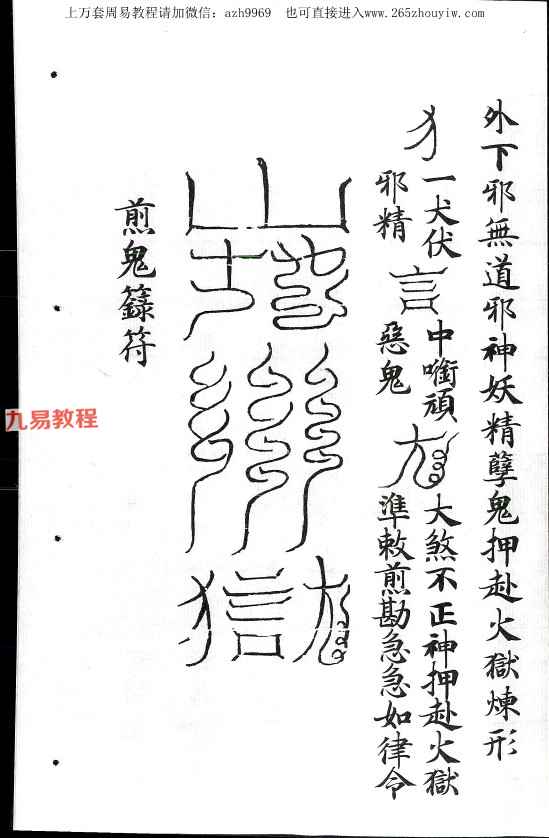 上万套周易教程请加微信：azh9969　也可直接进入www.265zhouyiw.com
外下邪無道邪神妖精孽鬼押赴火獄煉形
犭一犬伏邪精
言中噆頑惡鬼
大煞不正神押赴火獄準敕煎勘急急如律令
煎鬼籙符
九易教程